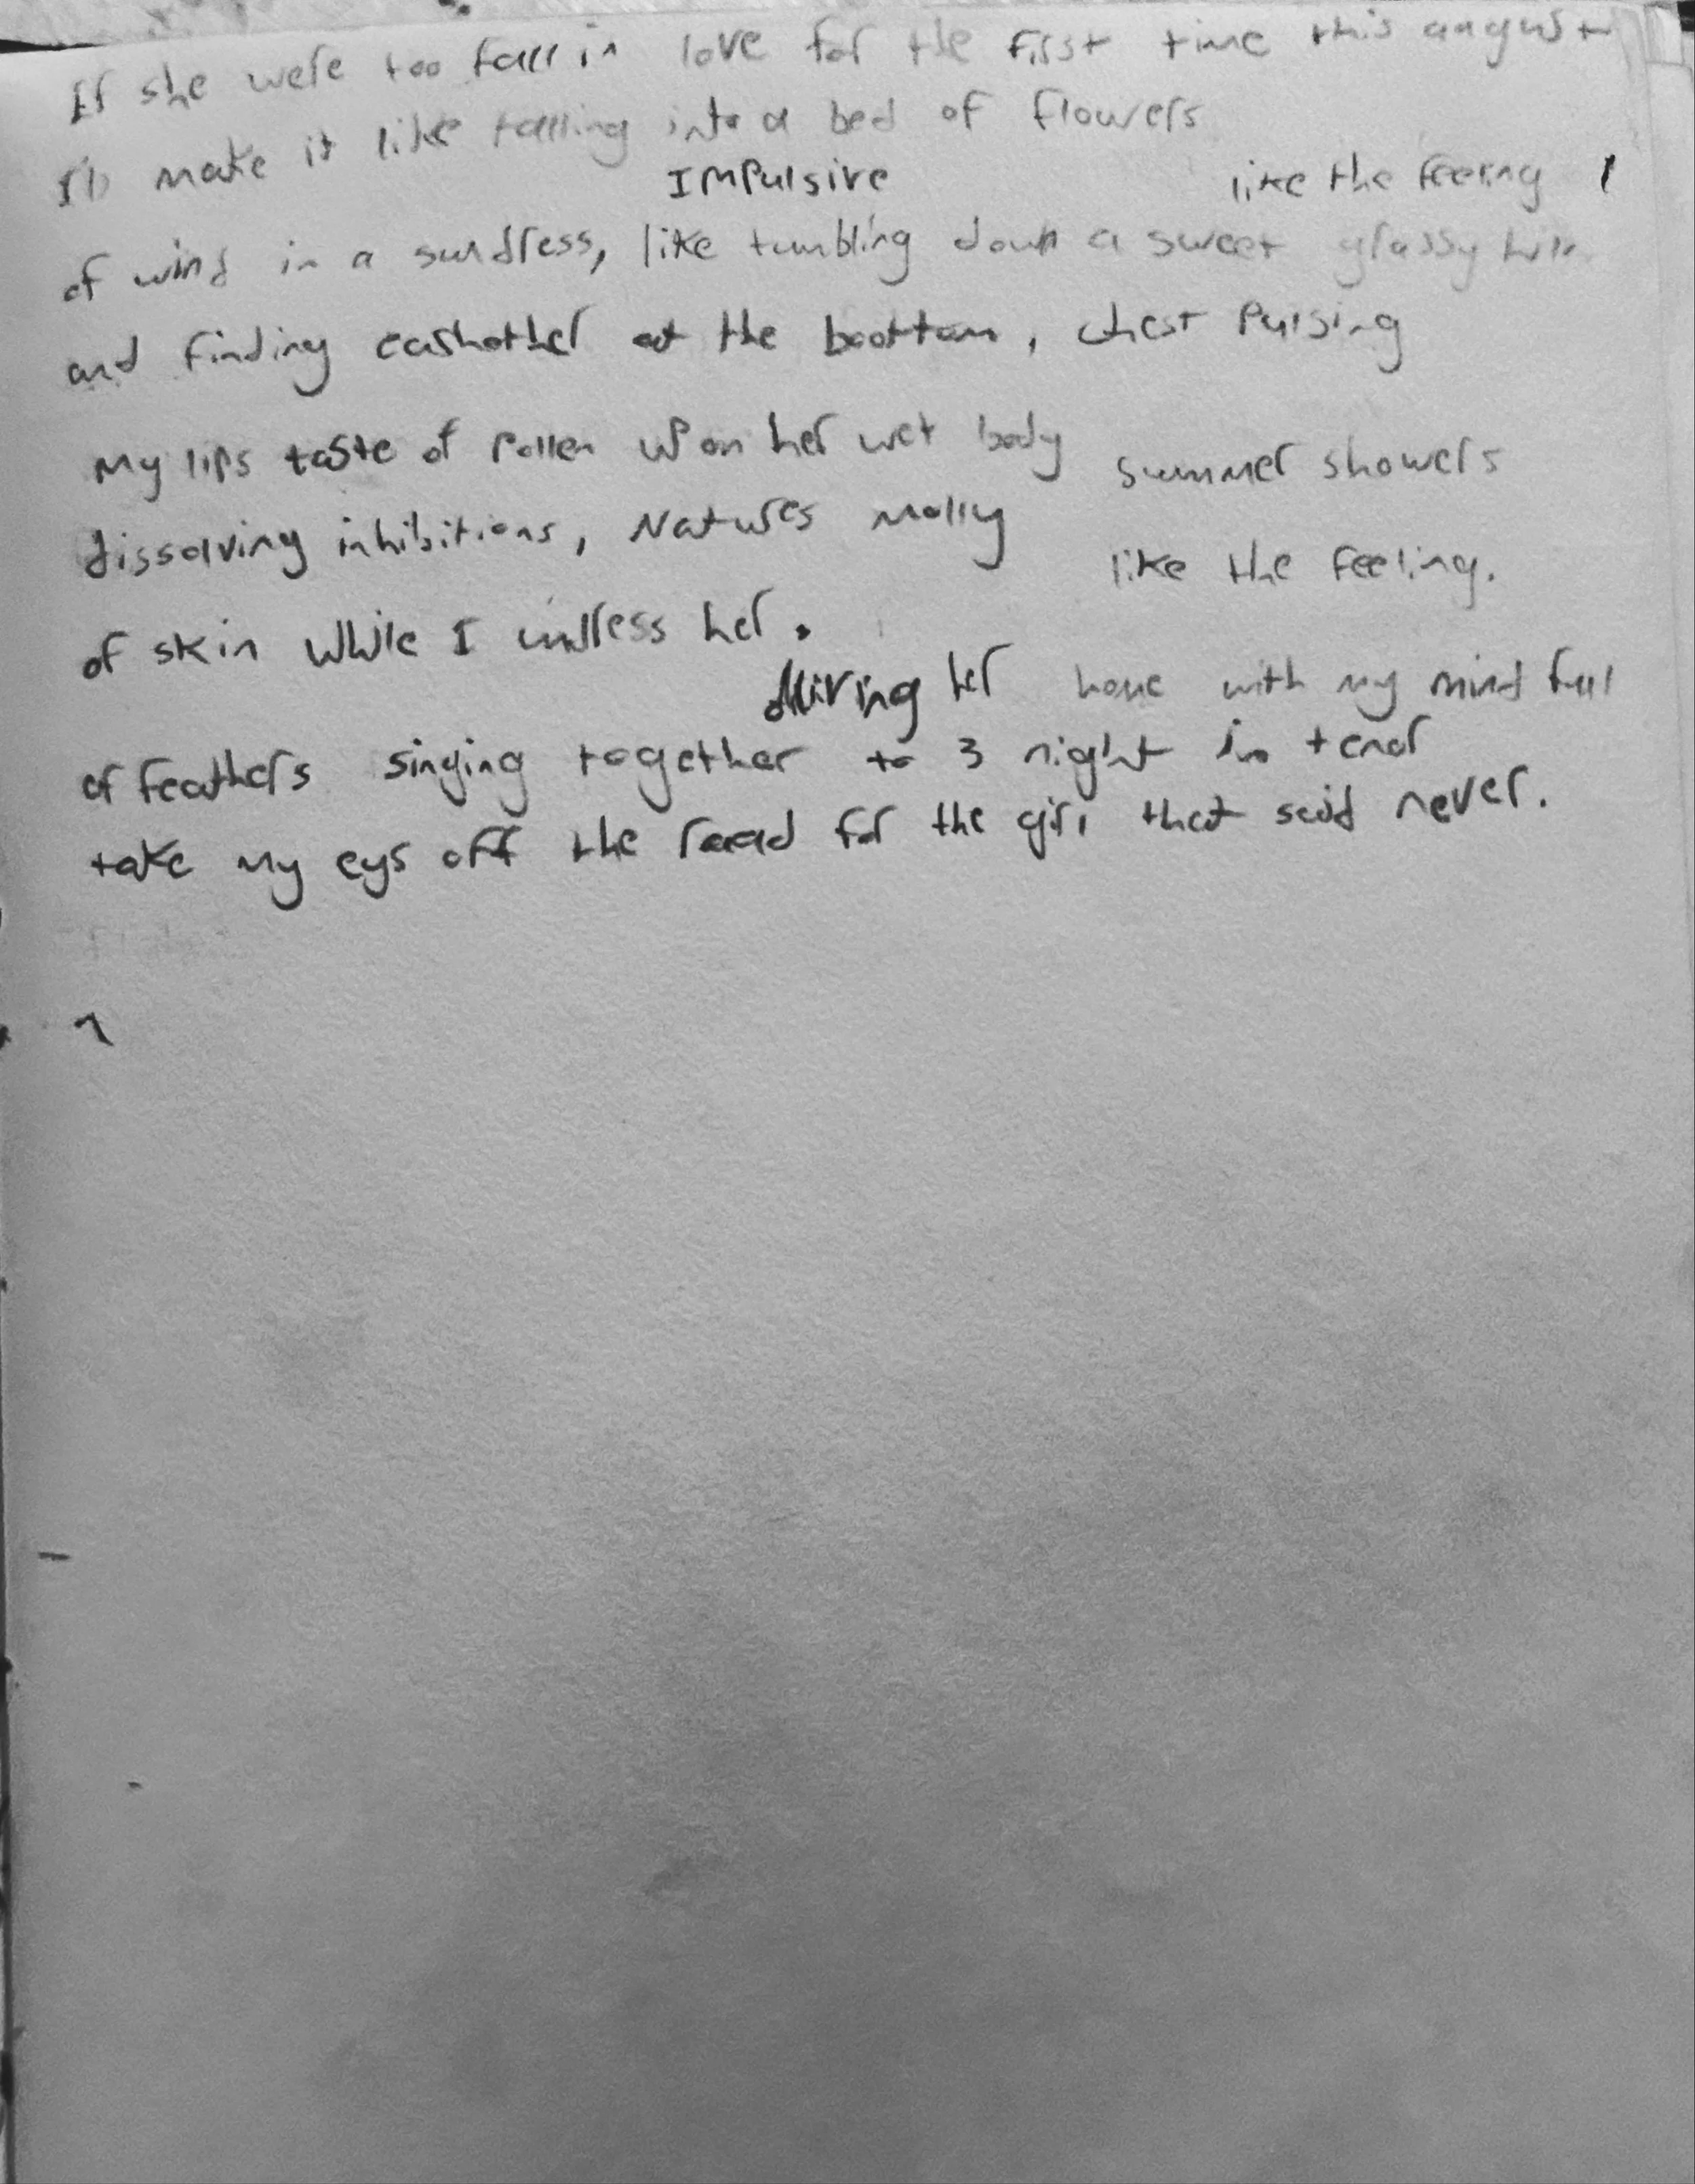 If she were too fall in love for the first time this august
I'd make it like falling into a bed of flowers
Impulsive like the feeling
of wind in a sundress, like tumbling down a sweet grassy hill
and finding eashother at the boottom, chest pulsing
My lips taste of pollen upon her wet body summer showers
dissolving inhibitions, Natures molly
like the feeling.
of skin while I undress her.
driving her home with my mind full
of feathers singing together to 3 night in
take my eys off the road for the girl that said never.